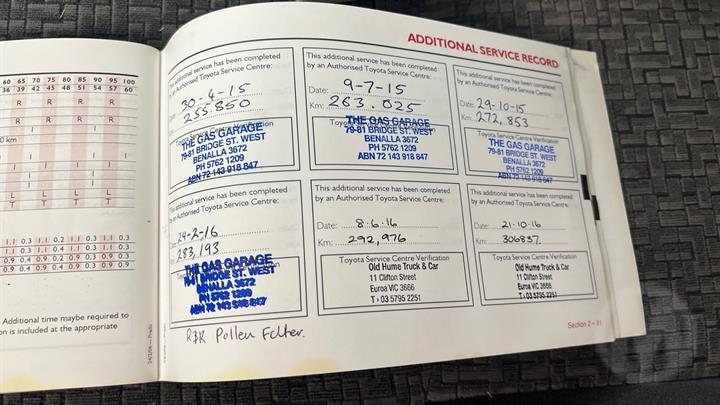 60 65 70 75 80 85 90 95 100
36 39 42 45 48 51 54 57 60
R R R R
R R R R
I I
0 km
I I I
I I I I
I I I
L L L L
T T T T
1.1 0.3 1.1 0.2 1.1 0.3 1.1 0.3
1.1 0.3 1.1 0.4 1.1 0.3 1.1 0.3
0.9 0.4 0.9 0.2 0.9 0.3 0.9 0.3
0.9 0.4 0.9 0.4 0.9 0.3 0.9 0.9
Additional time maybe required to
on is included at the appropriate
ADDITIONAL SERVICE RECORD
This additional service has been completed
by an Authorised Toyota Service Centre:
30-4-15
255.850
Toyota Service Centre Verification
THE GAS GARAGE
79-81 BRIDGE ST. WEST
BENALLA 3672
PH 5762 1209
ABN 72 143 918 847
This additional service has been completed
by an Authorised Toyota Service Centre:
Date: 9-7-15
Km: 263.025
THE GAS GARAGE
79-81 BRIDGE ST. WEST
BENALLA 3672
PH 5762 1209
ABN 72 143 918 847
This additional service has been completed
by an Authorised Toyota Service Centre:
Date: 29-10-15
Km: 272,853
Toyota Service Centre Verification
THE GAS GARAGE
79-81 BRIDGE ST. WEST
BENALLA 3672
PH 5762 1209
ABN 72 143 918 847
This additional service has been completed
by an Authorised Toyota Service Centre:
24-2-16
283,193
THE GAS GARAGE
BRIDGE ST. WEST
BENALLA 3672
PH 5762 1209
ABN 72 143 918 847
This additional service has been completed
by an Authorised Toyota Service Centre:
Date: 8.6.16
Km: 292,976
Toyota Service Centre Verification
Old Hume Truck & Car
11 Clifton Street
Euroa VIC 3666
T: 03 5795 2251
This additional service has been completed
by an Authorised Toyota Service Centre:
Date: 21-10-16
Km: 306837
Toyota Service Centre Verification
Old Hume Truck & Car
11 Clifton Street
Euroa VIC 3666
T: 03 5795 2251
R&R Pollen Felter.
Section 2 – 31